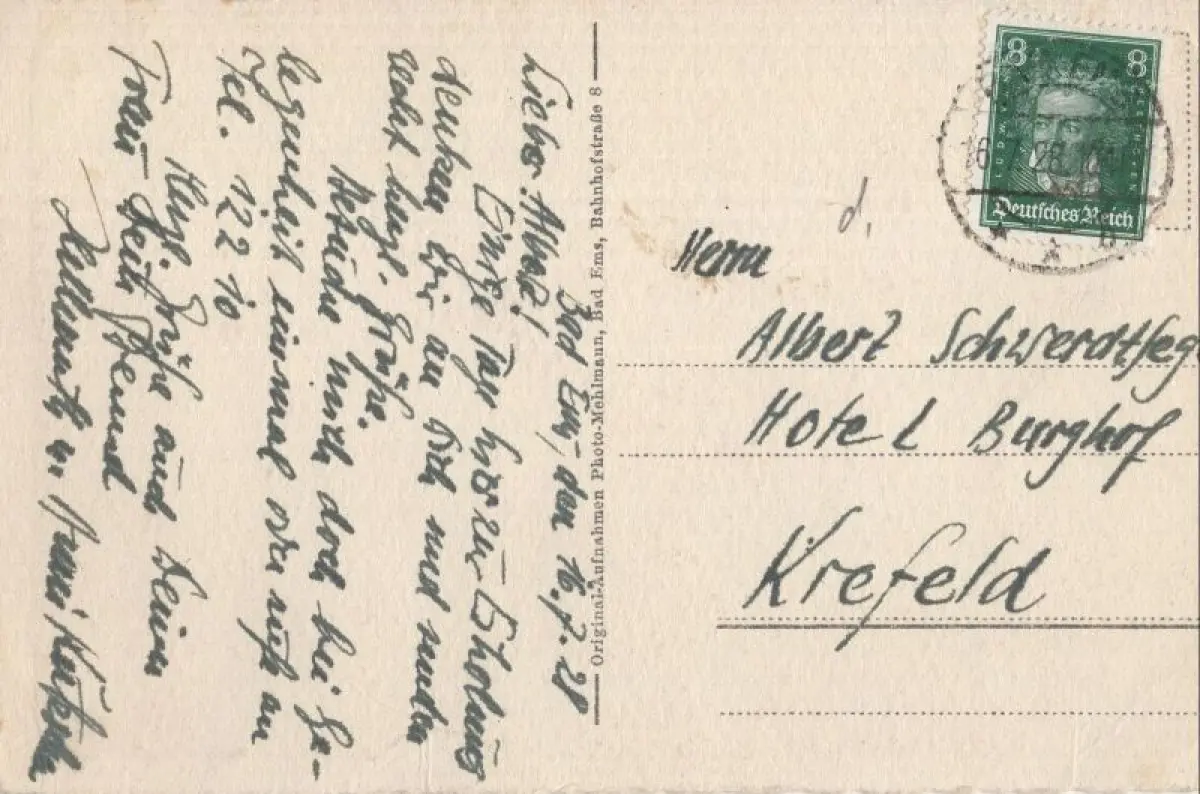 Bad Ems, den 16.7.28
Lieber Albert!
Einige Tage hier zur Erholung
denken wir an Dich und senden
Grüße.
Besuche mich doch bei Ge-
legenheit einmal oder rufe an
Tel. 122 10
Herzl. Grüße auch Deiner
Frau Dein Freund
Hellmuth u.
Original-Aufnahmen Photo-Mehlmann, Bad Ems, Bahnhofstraße 8
8 8
Deutsches Reich
16.7.28
d.
Herrn
Albert Schwerdtfeg
Hotel Burghof
Krefeld